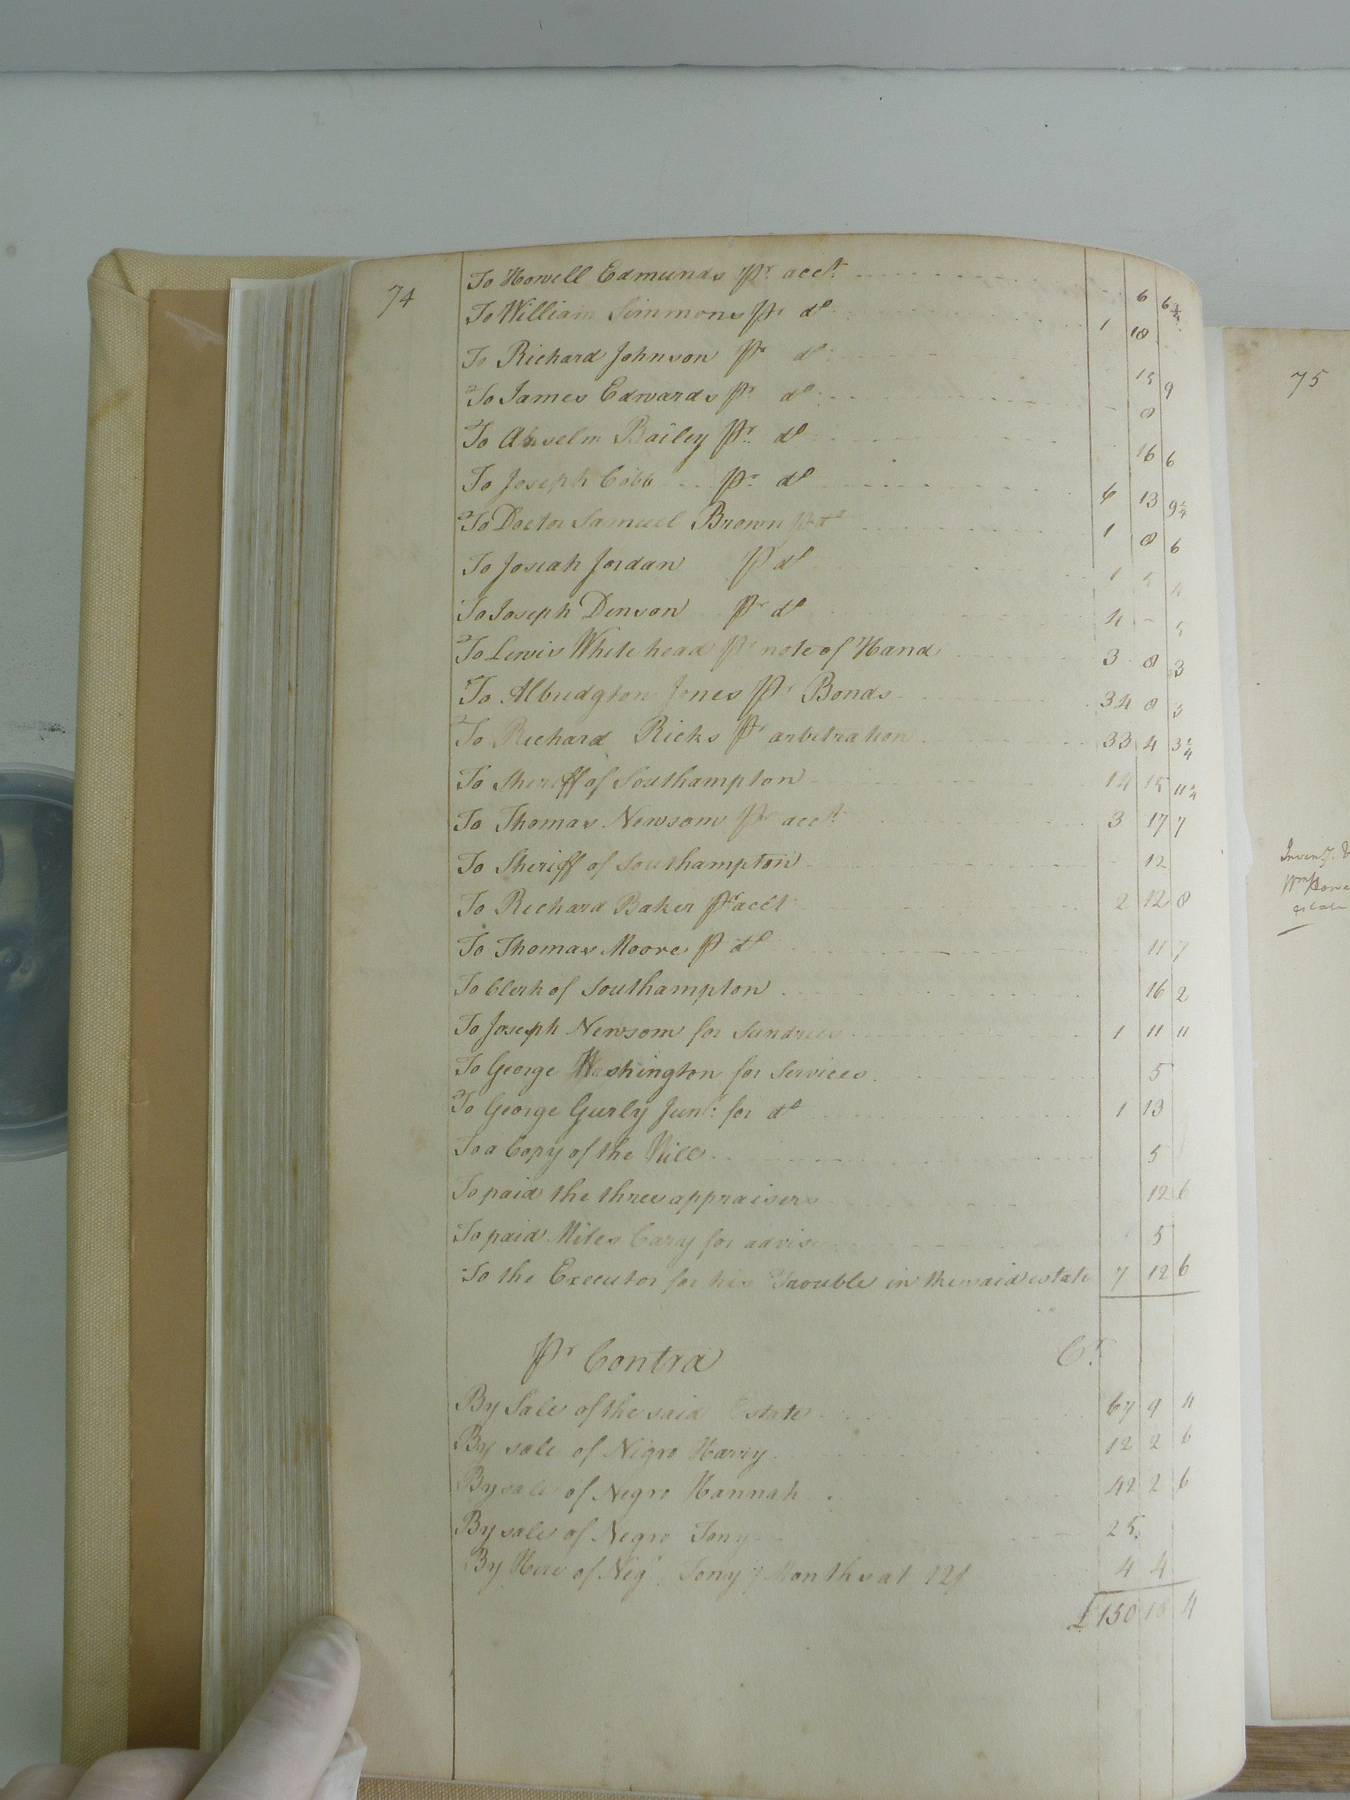 74
To Howell Edmunds pr. acct. 6 6 3/4
To William Simmons pr do 1 18
To Richard Johnson pr do 15 9
To James Edwards pr. do 8
To Anselm Bailey pr. do 16 6
To Joseph Cobb pr. do 6 13 9 1/4
To Doctor Samuel Brown pr do 1 8 6
To Josiah Jordan p do 1 5 4
To Joseph Denson pr do 4 - 5
To Lewis Whitehead pr note of Hand 3 8 3
To Albridgton Jones pr Bonds 34 8 3
To Richard Ricks pr arbitration 33 4 3 1/4
To Sheriff of Southampton 14 15 11 1/4
To Thomas Newsom pr acct. 3 17 7
To Sheriff of Southampton 12
To Richard Baker pr acct 2 12 8
To Thomas Moore p do 11 7
To Clerk of Southampton 16 2
To Joseph Newsom for Sundries 1 11 11
To George Washington for Services 5
To George Gurly Junr: for do 1 13
To a Copy of the Will 5
To paid the three appraisers 12 6
To paid Miles Cary for advise 5
To the Executor for his Trouble in the said estate 7 12 6
pr Contra Cr.
By Sale of the said Estate 67 9 11
By sale of Negro Harry 12 2 6
By sale of Negro Hannah 42 2 6
By sale of Negro Tony 25
By Hire of Nego. Tony 7 Months at 12/ 4 4
£150 18 4
75
Inventy. &
Wm
estate